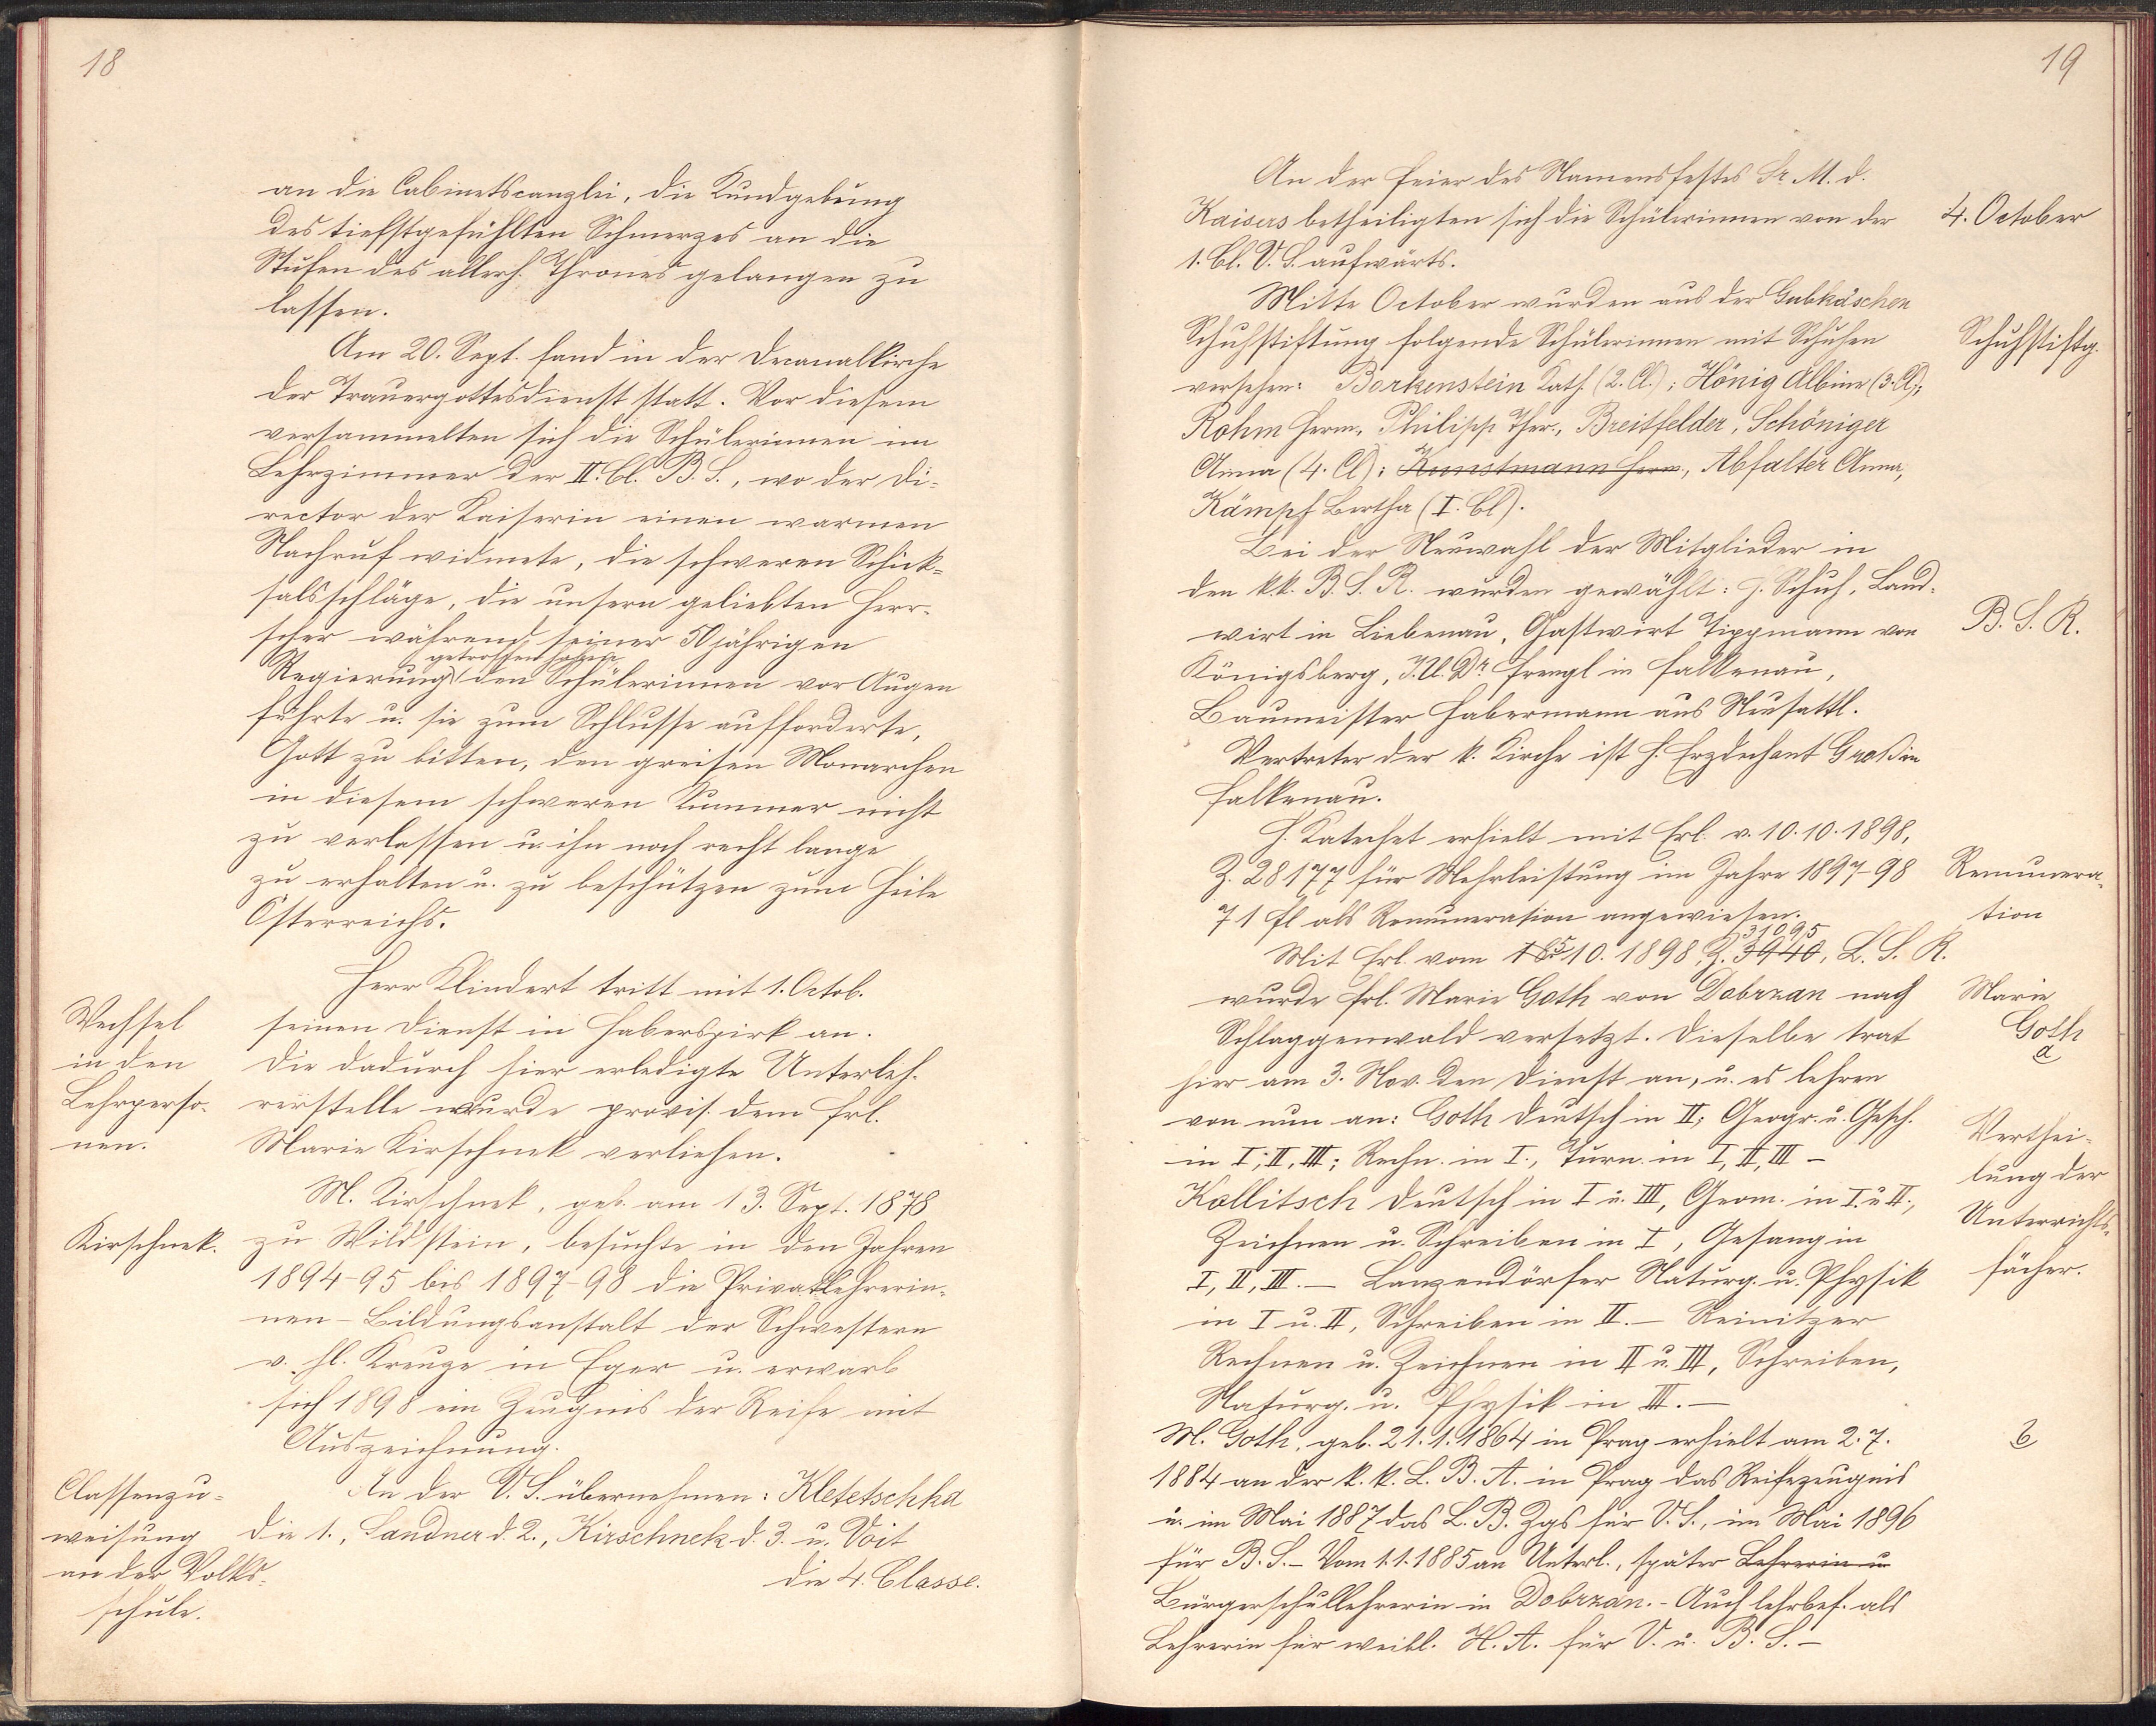 18
an die Cabinetscanzlei, die Kundgebung
des tiefstgefühlten Schmerzes an die
Stufen des allerh. Thrones gelangen zu
lassen.
Am 20. Sept. fand in der Decanalkirche
der Trauergottesdienst statt. Vor diesem
versammelten sich die Schülerinnen im
Lehrzimmer der II. Cl. B. S., wo der Di-
rector der Kaiserin einen warmen
Nachruf widmete, die schweren Schick-
salsschläge, die unsern geliebten Herr-
scher während seiner 50jährigen
getroffen haben
Regierung den Schülerinnen vor Augen
führte u. sie zum Schlusse aufforderte,
Gott zu bitten, den greisen Monarchen
in diesem schweren Kummer nicht
zu verlassen u. ihn noch recht lange
zu erhalten u. zu beschützen zum Heile
Österreichs.
Herr Klindert tritt mit 1. Octob.
Wechsel seinen Dienst in Haberspirk an.
in den Die dadurch hier erledigte Unterleh-
Lehrperso- rerstelle wurde provis. dem Frl.
nen. Marie Kirschnek verliehen.
M. Kirschnek, geb. am 13. Sept. 1878
Kirschnek. zu Wildstein, besuchte in den Jahren
1894-95 bis 1897-98 die Privatlehrerin-
nen-Bildungsanstalt der Schwestern
v. hl. Kreuze in Eger u. erwarb
sich 1898 ein Zeugnis der Reife mit
Auszeichnung.
Classenzu- An der V. S. übernehmen: Kletetschka
weisung die 1., Sandner d. 2., Kirschnek d. 3. u. Voit
an der Volks- die 4. Classe.
schule.
19
An der Feier des Namensfestes Sr. M. d.
Kaisers betheiligten sich die Schülerinnen von der 4. October
1. Cl. V. S. aufwärts.
Mitte October wurden aus der Gabkäschen
Schuhstiftung folgende Schülerinnen mit Schuhen Schuhstiftg.
versehen: Borkenstein Kath. (2. Cl.); Hönig Albine (3. Cl);
Rohm Herm., Philipp Ther., Breitfelder, Schöniger
Anna (4. Cl); Kunstmann Herm., Abfalter Anna,
Kämpf Bertha (I. Cl).
Bei der Neuwahl der Mitglieder in
den k.k. B. S. R. wurden gewählt: J. Schuh, Land-
wirt in Liebenau, Gastwirt Tippmann von B. S. R.
Königsberg, J.U.Dr. Frengl in Falkenau,
Baumeister Habermann aus Neusattl.
Vertreter der k. Kirche ist H. Erzdechant Groß in
Falkenau.
H. Katechet erhielt mit Erl. v. 10.10.1898,
Z. 28177 für Mehrleistung im Jahre 1897-98 Remunera-
71 fl als Remuneration angewiesen. tion
31095
Mit Erl. vom 18 5 10. 1898, Z. 3940, L. S. R.
wurde Frl. Marie Goth von Dobrzan nach Marie
Schlaggenwald versetzt. Dieselbe trat Goth
a
hier am 3. Nov. den Dienst an, u. es lehren
von nun an: Goth Deutsch in II; Geogr. u. Gesch. Verthei-
in I, II, III; Rechn. in I., Turn. in I, II, III -
lung der
Kollitsch Deutsch in I u. III, Geom. in I. u II., Unterrichts-
Zeichnen u. Schreiben in I, Gesang in
I, II, III. - Lanzendörfer Naturg. u. Physik fächer.
in I u. II, Schreiben in II. - Reinitzer
Rechnen u. Zeichnen in II u. III, Schreiben,
Naturg. u. Physik in III. -
M. Goth, geb. 21.1.1864 in Prag erhielt am 2.7. b
1884 an der k. k. L. B. A. in Prag das Reifezeugnis
u. im Mai 1887 das L. B. Zgs für V. S., im Mai 1896
für B. S. - Vom 1.1.1885 an Unterl., später Lehrerin u
Bürgerschullehrerin in Dobrzan. - Auch lehrbef. als
Lehrerin für weibl. H. A. für V. u. B. S. -